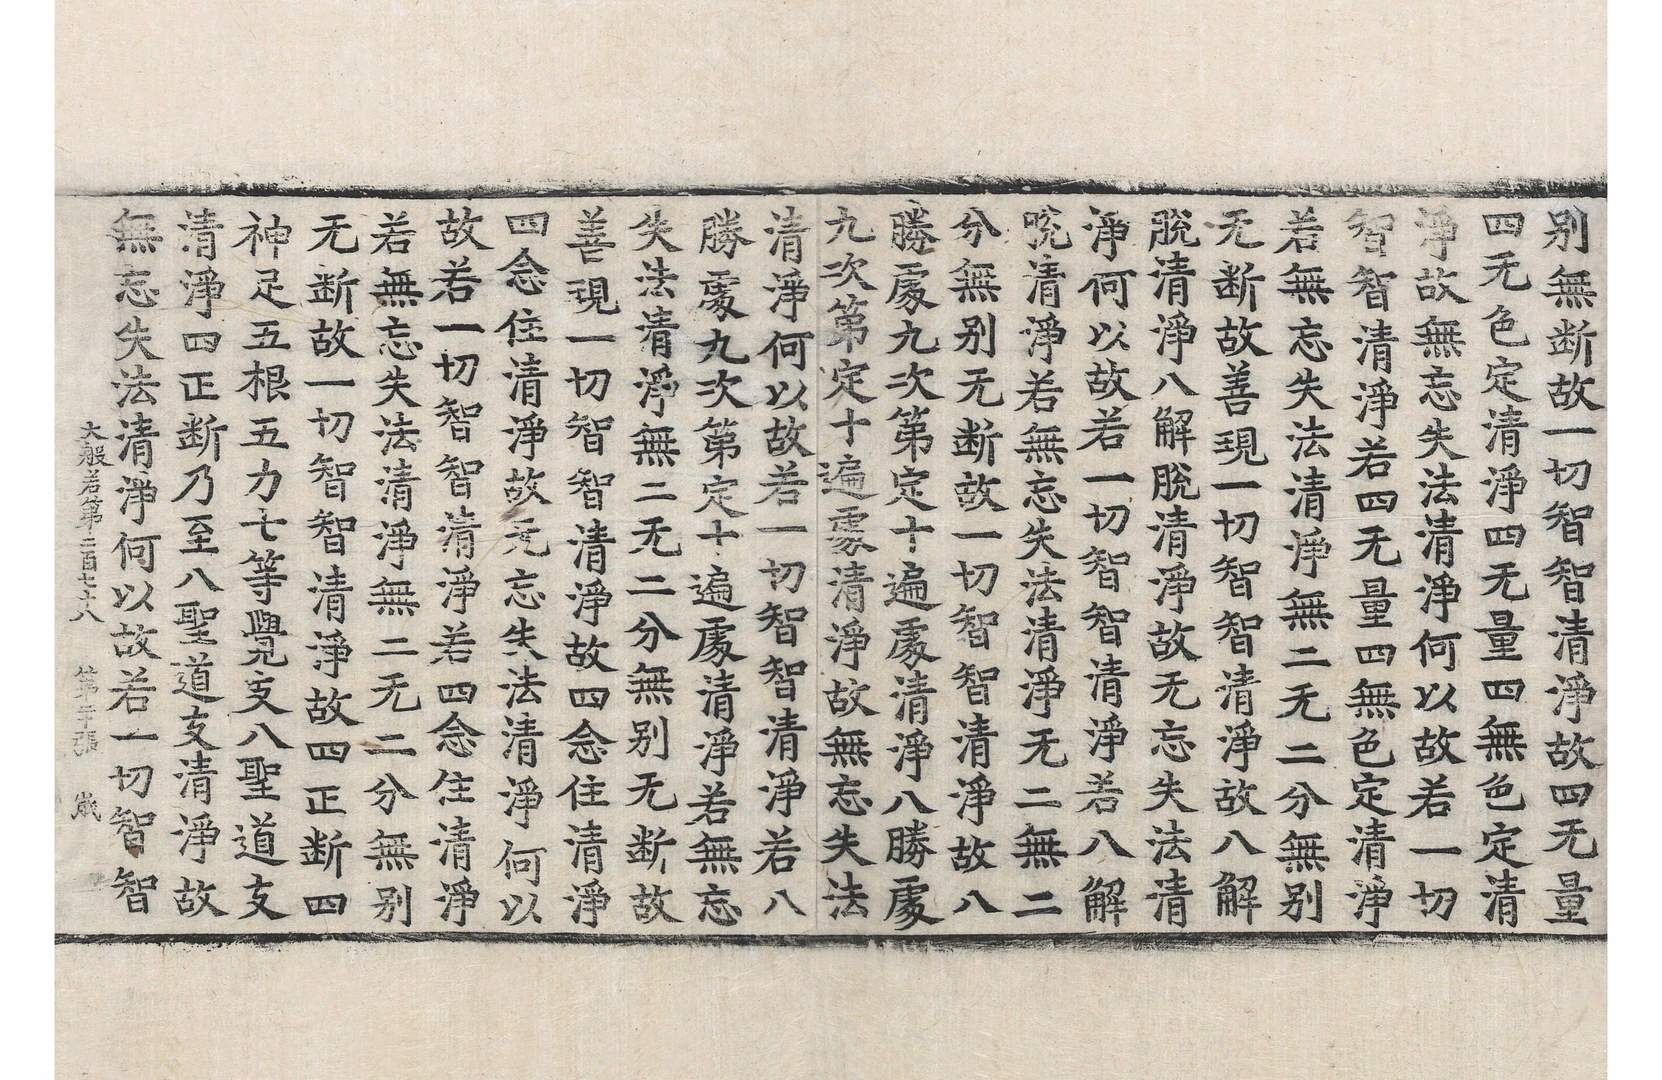 别無断故一切智智清淨故四无量
四无色定清淨四无量四無色定清
淨故無忘失法清淨何以故若一切
智智清淨若四无量四無色定清淨
若無忘失法清淨無二无二分無别
无断故善現一切智智清淨故八解
脫清淨八解脫清淨故无忘失法清
淨何以故若一切智智清淨若八解
脫清淨若無忘失法清淨无二無二
分無别无断故一切智智清淨故八
勝處九次第定十遍處清淨八勝處
九次第定十遍處清淨故無忘失法
清淨何以故若一切智智清淨若八
勝處九次第定十遍處清淨若無忘
失法清淨無二无二分無别无断故
善現一切智智清淨故四念住清淨
四念住清淨故无忘失法清淨何以
故若一切智智清淨若四念住清淨
若無忘失法清淨無二无二分無别
无断故一切智智清淨故四正断四
神足五根五力七等覺支八聖道支
清淨四正断乃至八聖道支清淨故
無忘失法清淨何以故若一切智智
大般若第二百七十八 第 張 歲